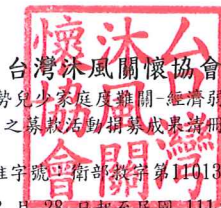 台灣沐風關懷協會
勢兒少家庭度難關-經濟弱
之募款活動捐募成果清冊
字號 衛部救字第11013
月 28 日起至民國 111
台灣
沐風關
懷協會